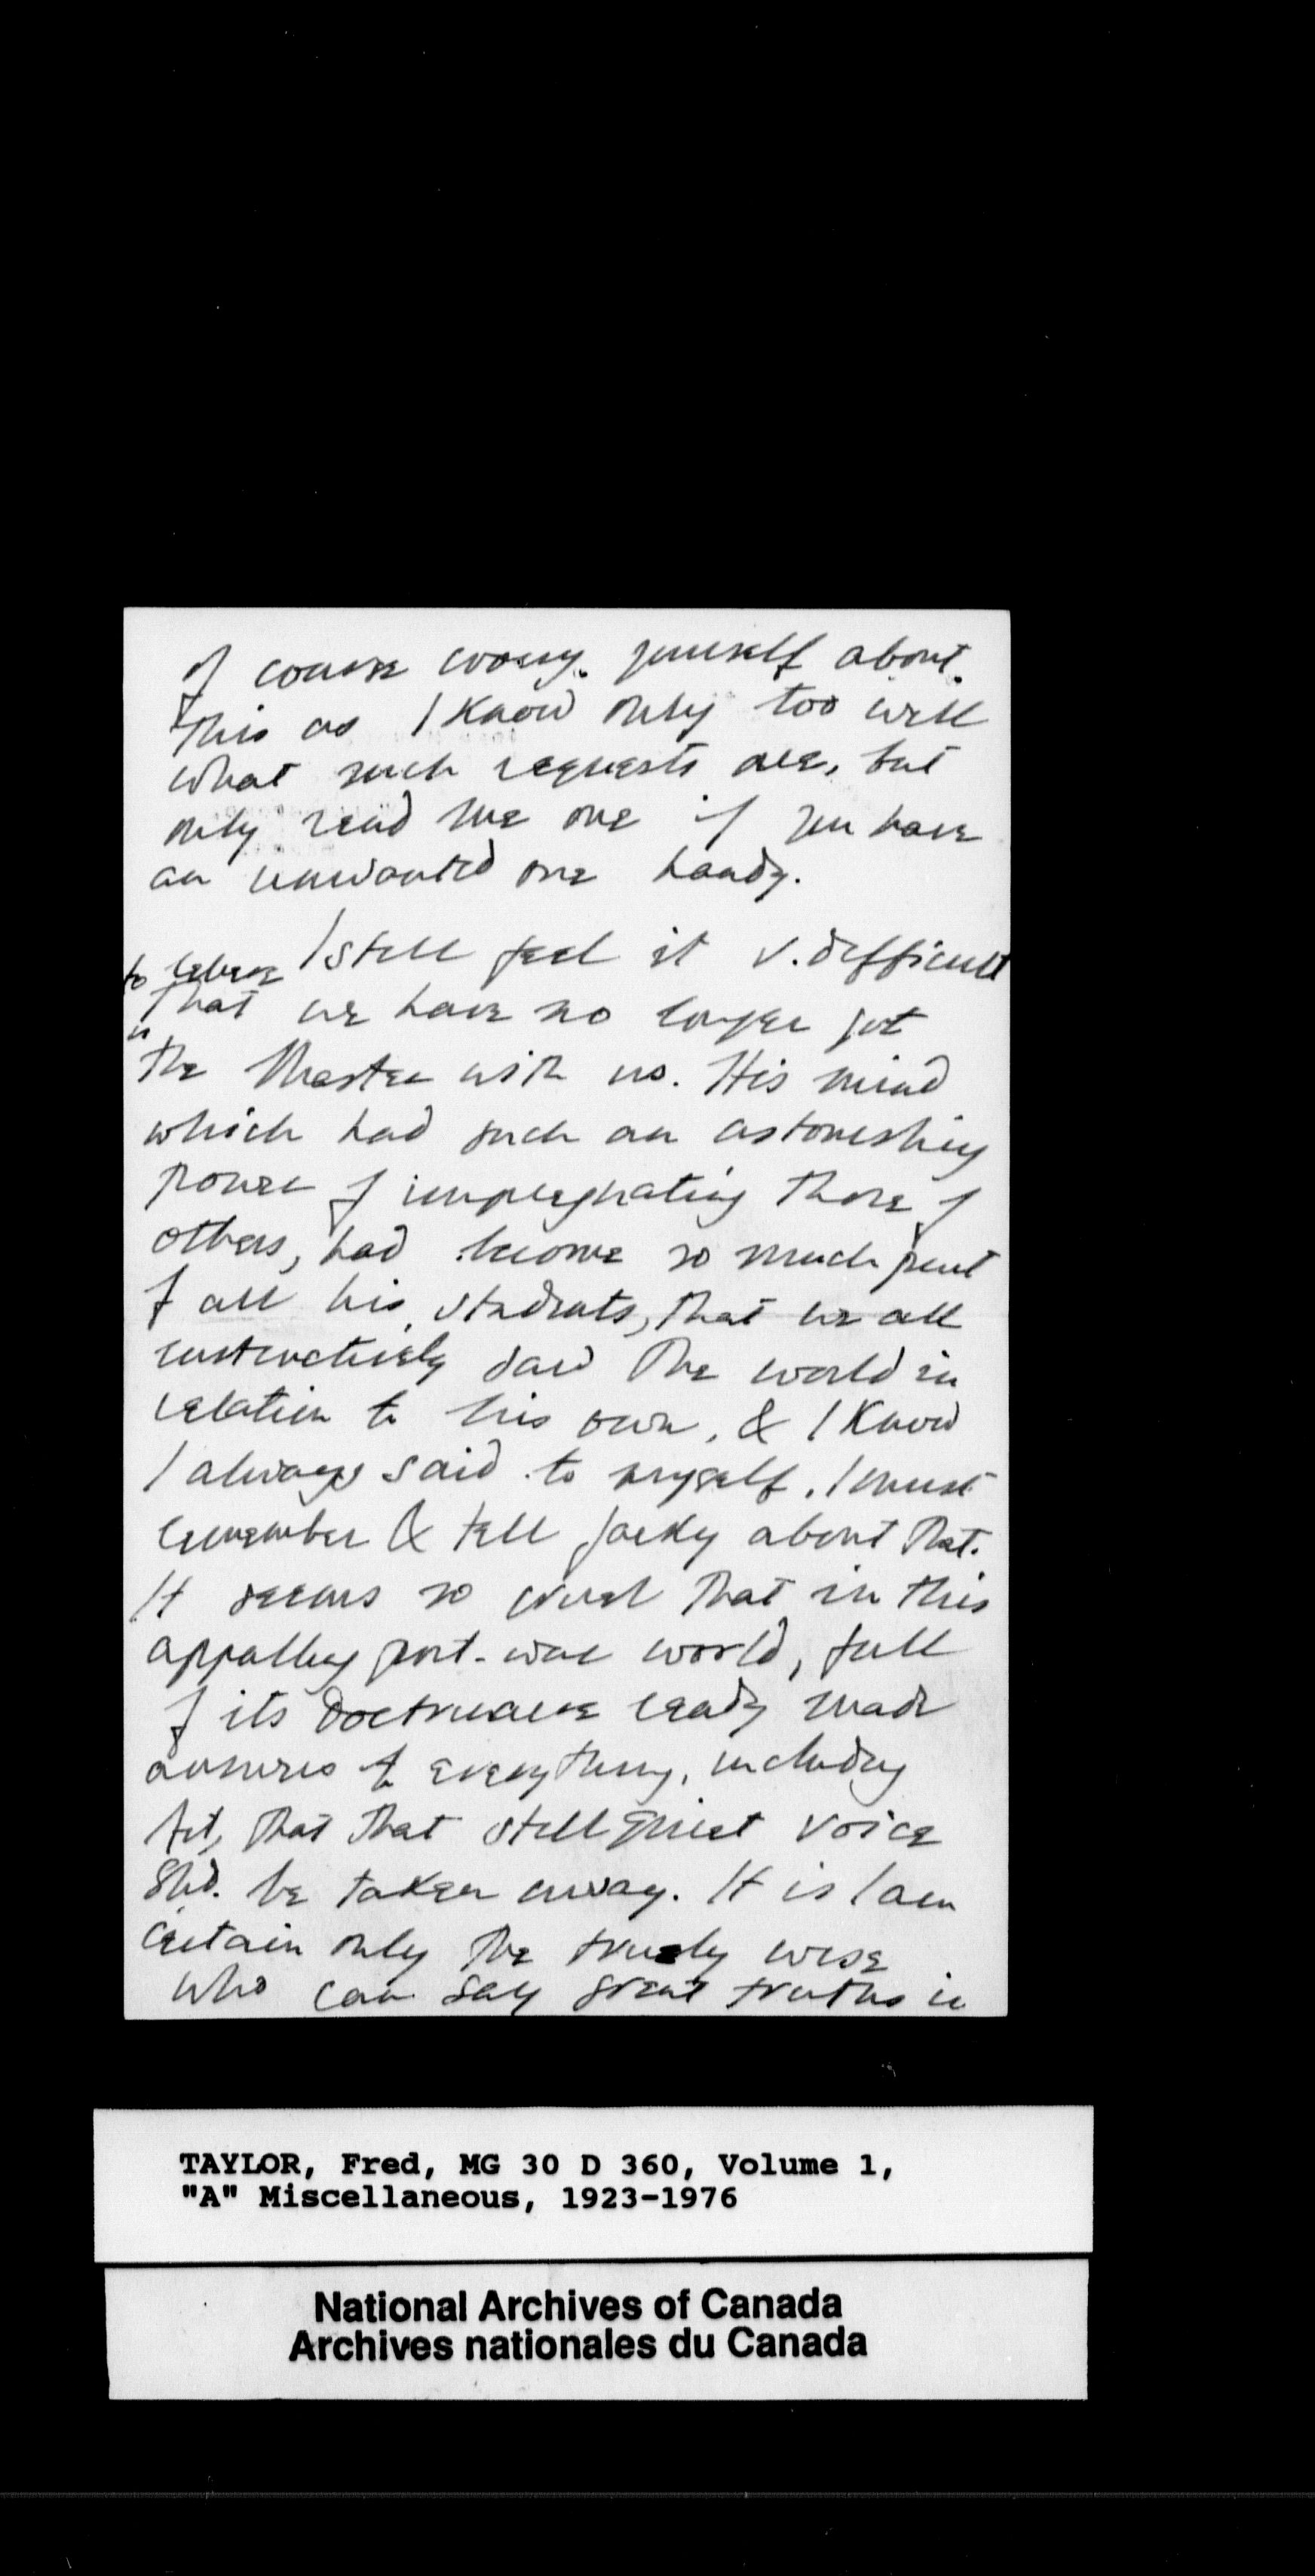 of course worry yourself about
this as I know only too well
what such requests are, but
only send me one if you have
an unwanted one handy.
I still feel it v. difficult
to believe
that we have no longer got
the Master with us. His mind
which had such an astonishing
power of impregnating those of
others, had become so much part
of all his students, that we all
instinctively saw the world in
relation to his own, & I know
I always said to myself, I must
remember & tell Jacky about that.
It seems so cruel that in this
appalling post-war world, full
of its Doctrinaire ready made
answers to everything, including
Art, that that still quiet voice
shd. be taken away. It is I am
certain only the truely wise
who can say great truths in
TAYLOR, Fred, MG 30 D 360, Volume 1,
"A" Miscellaneous, 1923-1976
National Archives of Canada
Archives nationales du Canada